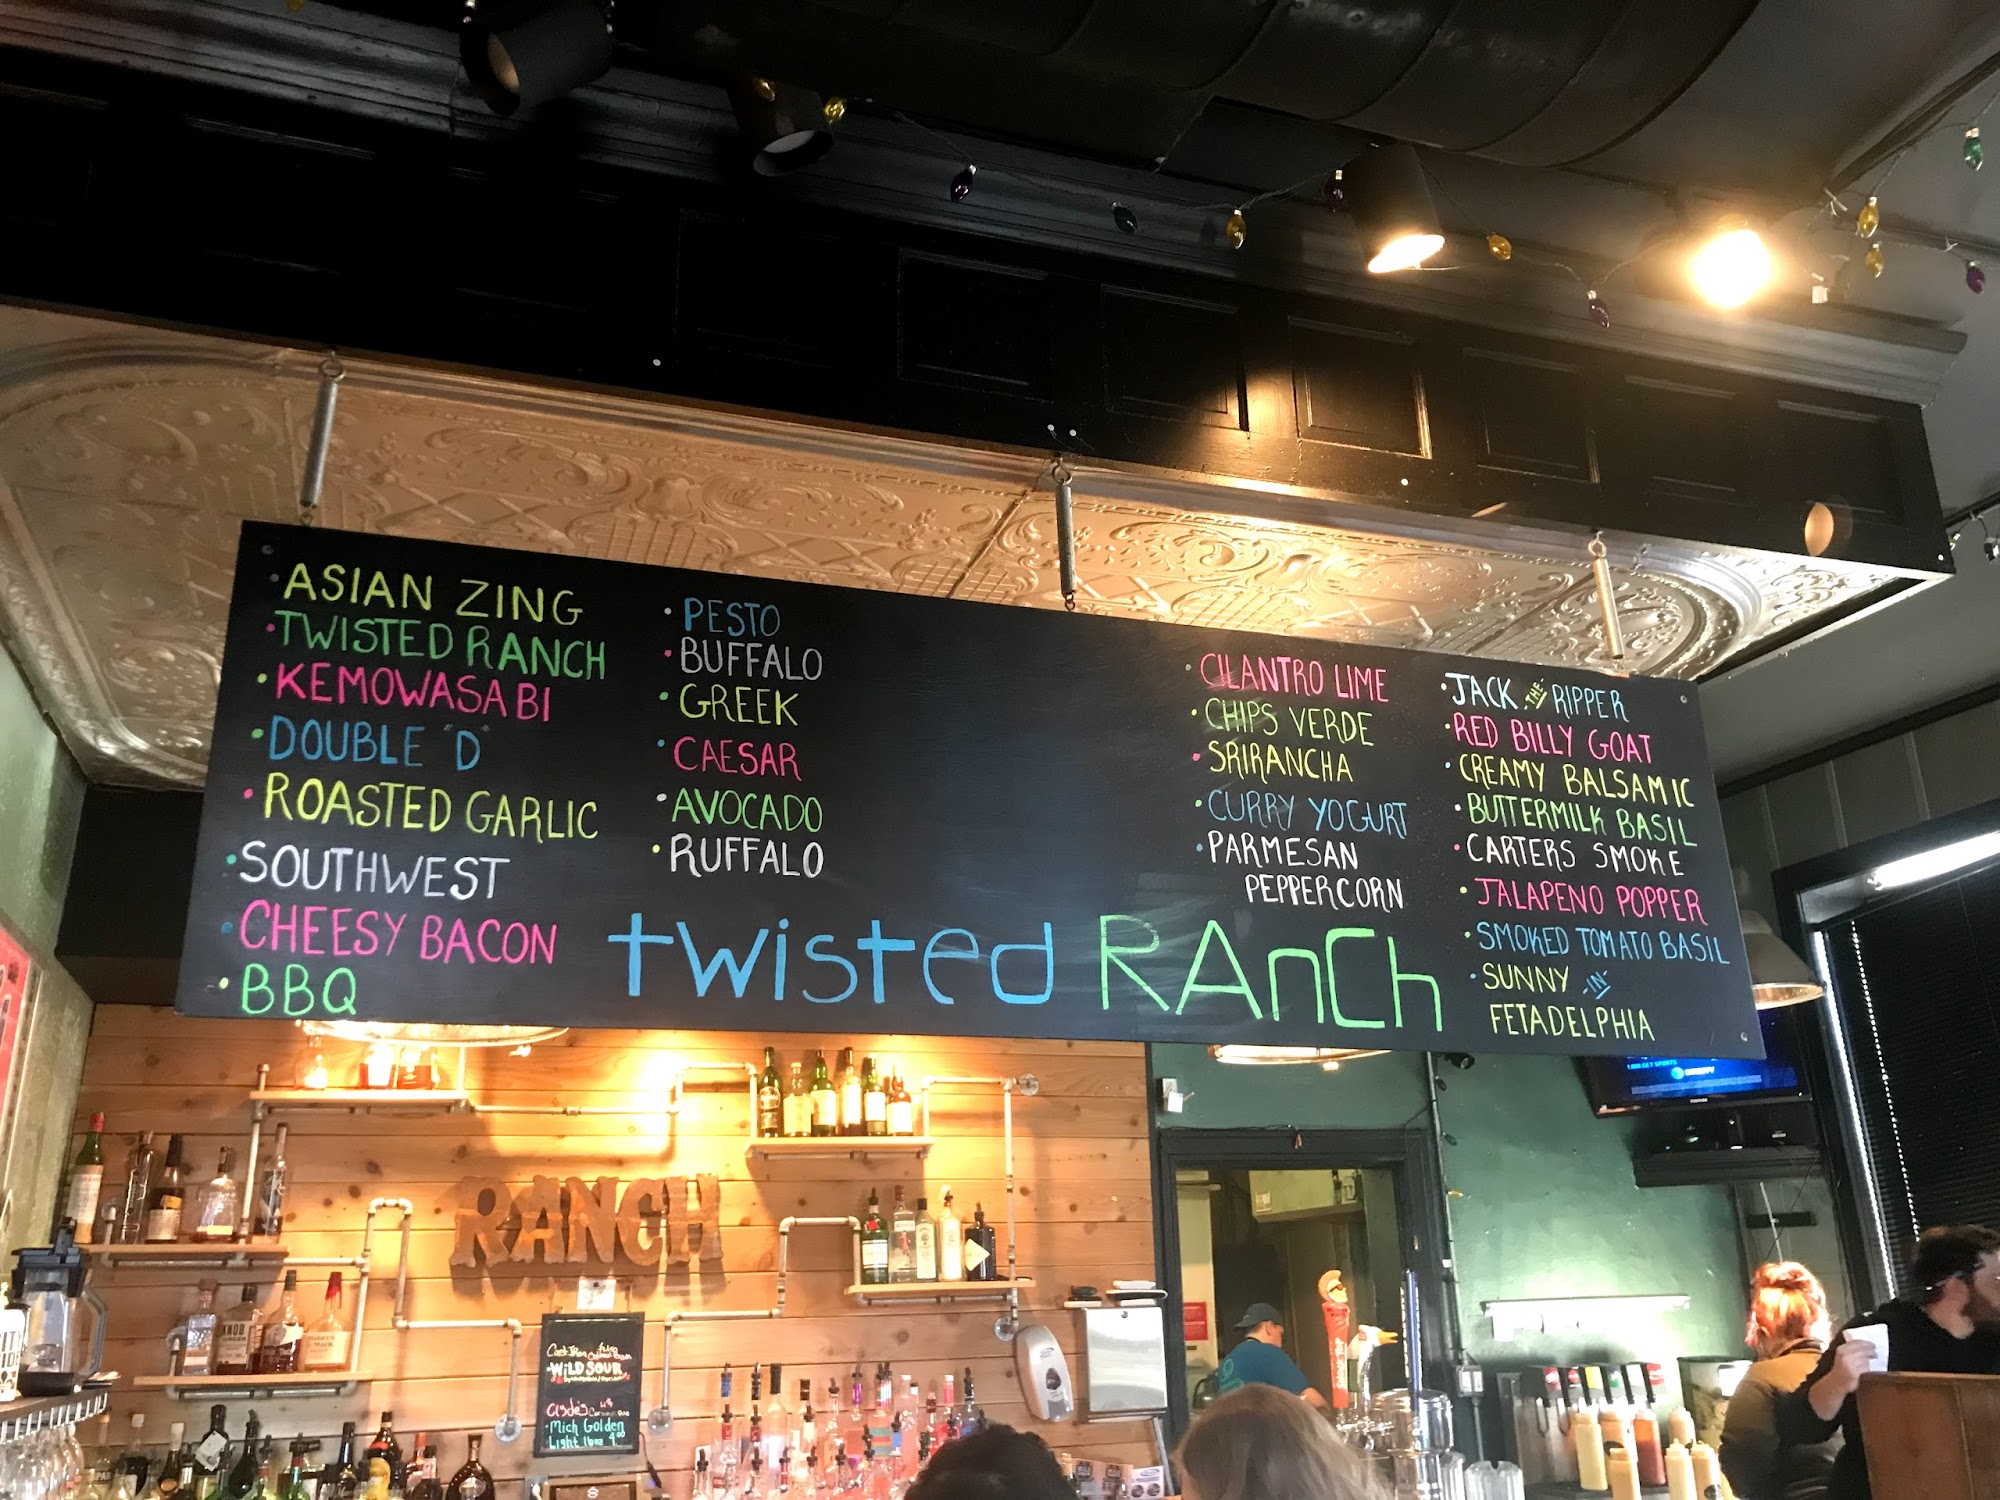 ASIAN ZING
• TWISTED RANCH
• KEMOWASABI
• DOUBLE "D"
• ROASTED GARLIC
• SOUTHWEST
• CHEESY BACON
• BBQ
• PESTO
• BUFFALO
• GREEK
• CAESAR
• AVOCADO
• RUFFALO
twisted RAnCh
• CILANTRO LIME
• CHIPS VERDE
• SRIRANCHA
• CURRY YOGURT
• PARMESAN
PEPPERCORN
• JACK THE RIPPER
• RED BILLY GOAT
• CREAMY BALSAMIC
• BUTTERMILK BASIL
• CARTERS SMOKE
• JALAPENO POPPER
• SMOKED TOMATO BASIL
• SUNNY IN
FETADELPHIA
RANCH
WILD SOUR
Clyde's
• Mich Golden
Light 16oz 4.00
KNOB
DIRECTV